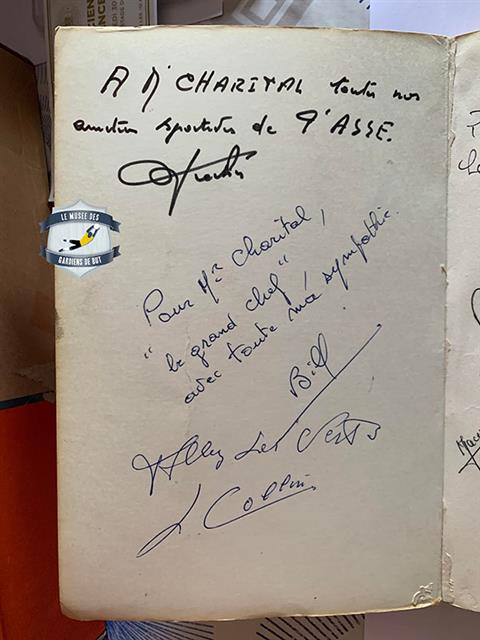 A Mr CHARITAL toutes nos
amitiés sportives de l'ASSE.
Pour Mr Charital,
"le grand chef"
avec toute ma sympathie.
Bill
Allez Les Verts
LE MUSEE DES
GARDIENS DE BUT